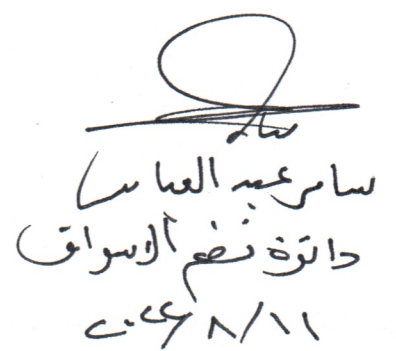 سامر عبد العباس
دائرة نظم الاسواق
٢٠٢٤/٨/١١